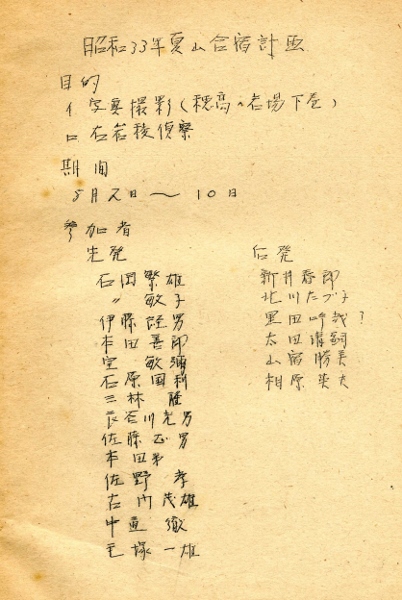 昭和33年夏山合宿計画
目的
イ 写真撮影(穂高の岩場下巻)
ロ 右岩稜偵察
期間
8月2日〜10日
参加者
先発
石岡繁雄
〃 敏子
伊藤経男
本田善郎
室 敏彌
石原国利
三林隆
長谷川光男
佐藤正男
本田
佐野 孝
右内茂雄
中重 徹
毛塚一雄
后発
新井春郎
北川たづ子
黒田 哉?
太田 嗣
山宿勝美
相原英夫